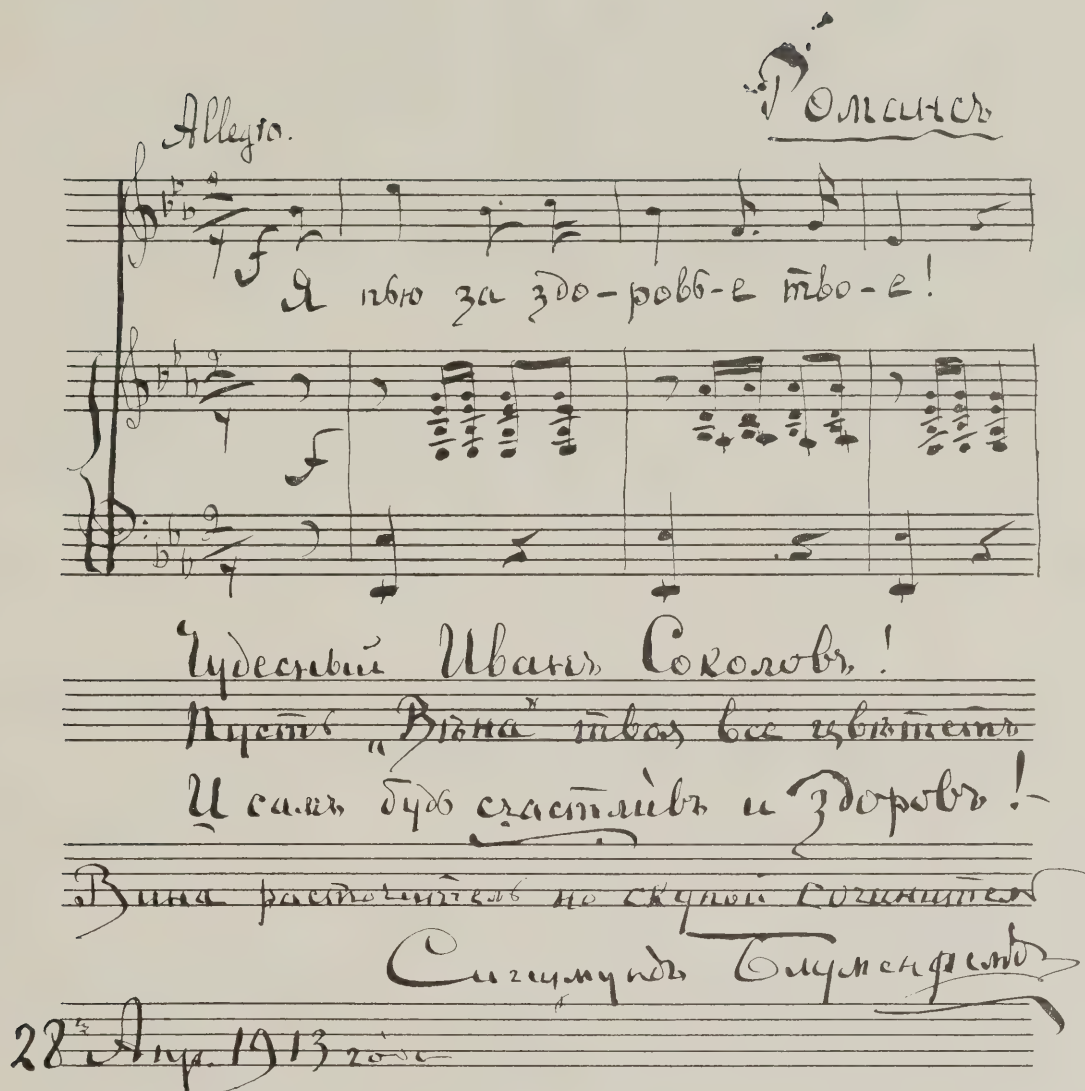 Романсъ
Allegro.
f
Я пью за здо-ровь-е тво-е!
f
Чудесный Иванъ Соколовъ!
Пусть „Вѣна“ твоя все цвѣтетъ
И самъ будь счастливъ и здоровъ!-
Вина расточитель но скупой сочинитель
Сигизмундъ Блуменфельдъ
28 Апр. 1913 года